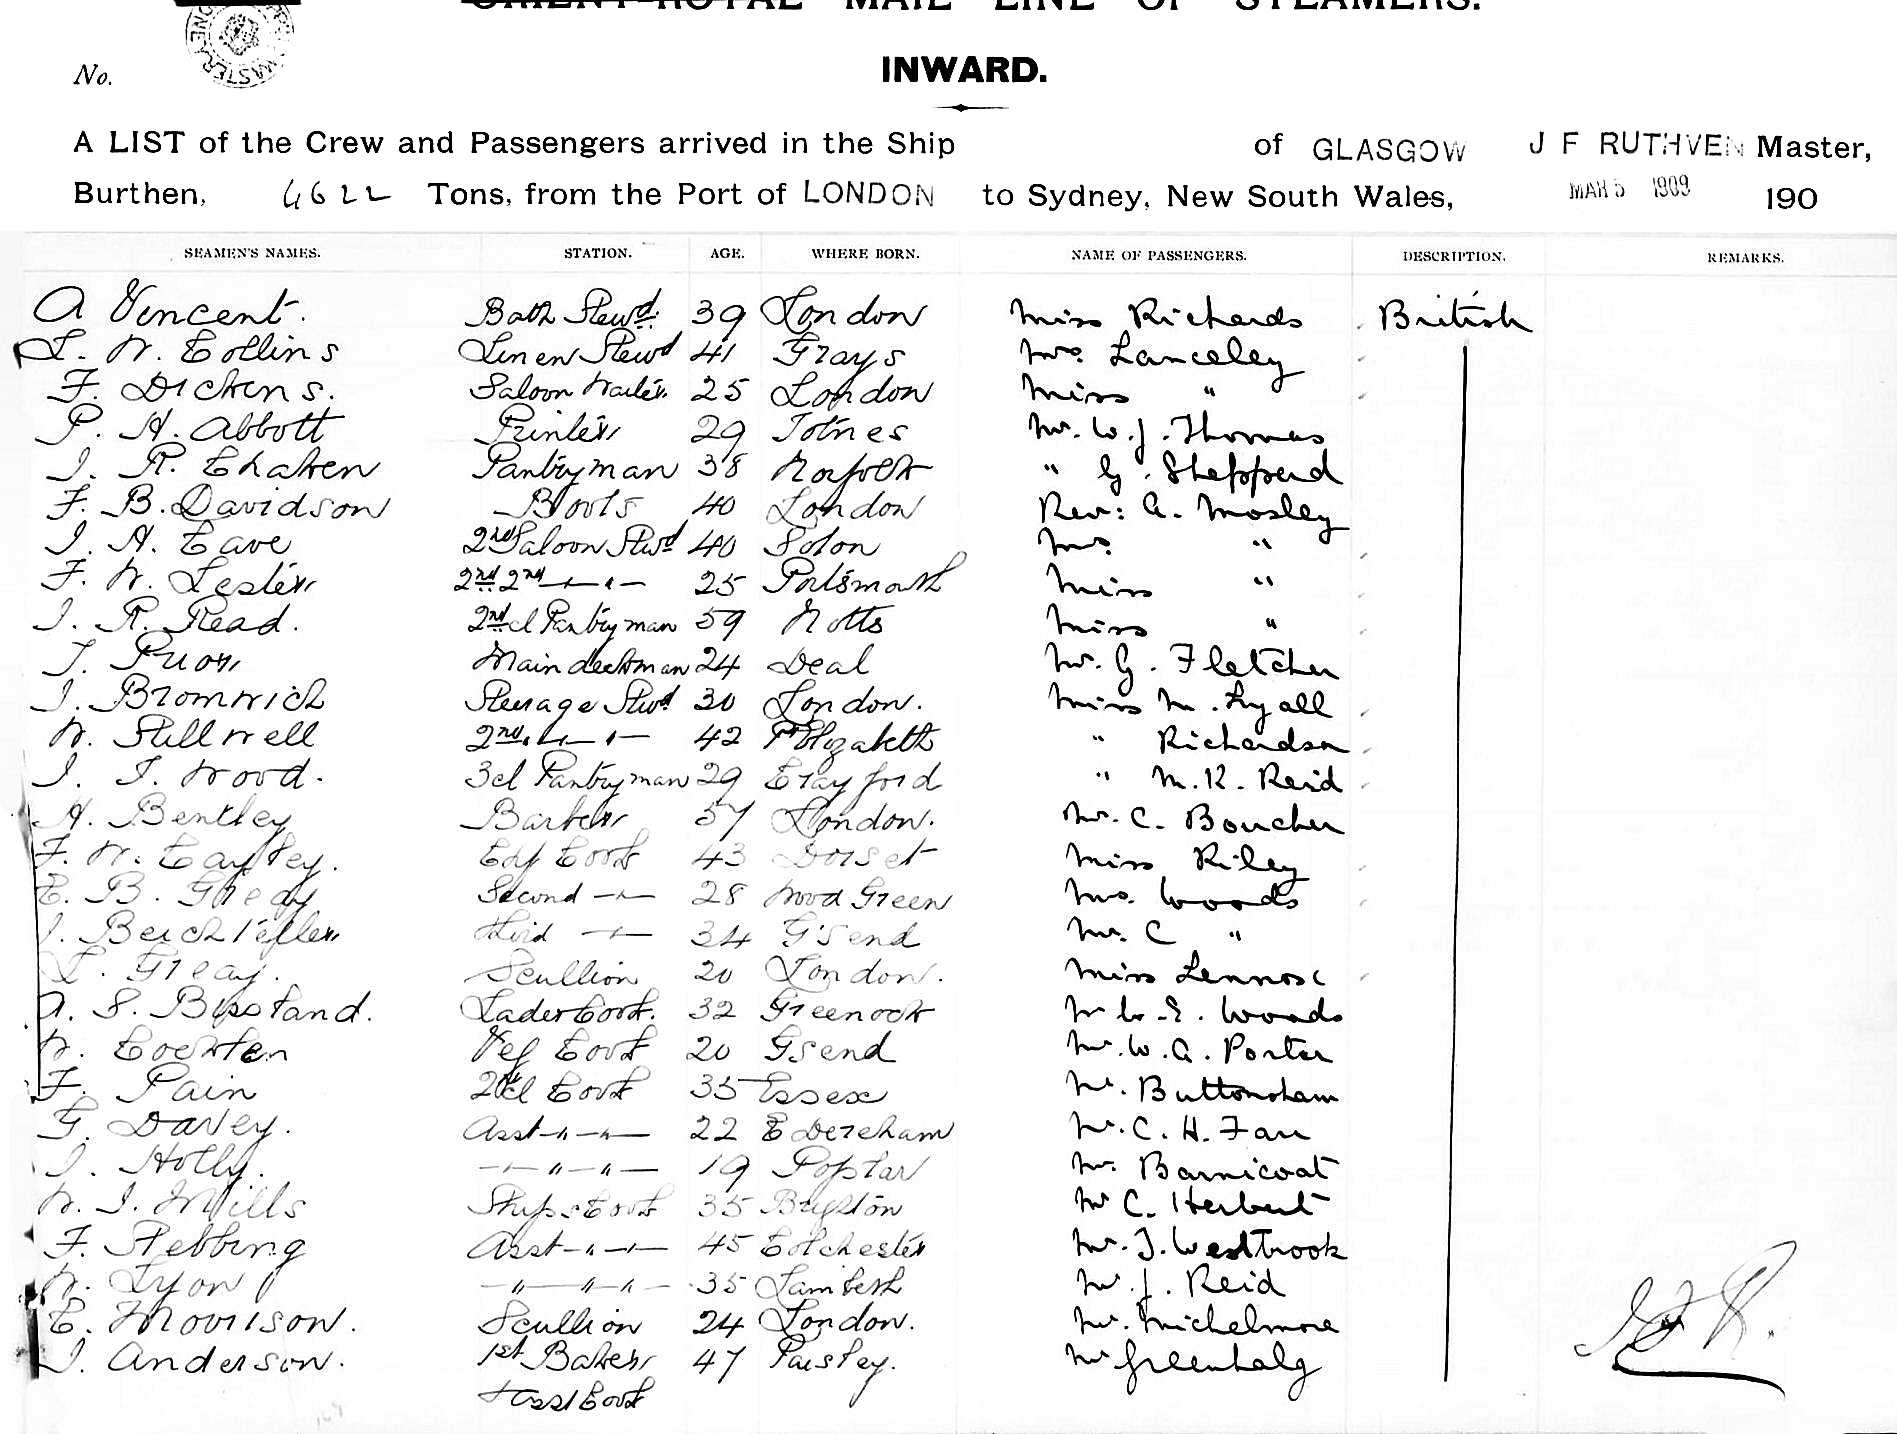 ROYAL MAIL LINE OF STEAMERS.
No.
INWARD.
A LIST of the Crew and Passengers arrived in the Ship of GLASGOW J F RUTHVEN Master,
Burthen, 4622 Tons, from the Port of LONDON to Sydney, New South Wales, MAR 5 1909 190
SEAMEN'S NAMES. STATION. AGE. WHERE BORN. NAME OF PASSENGERS. DESCRIPTION. REMARKS.
A Vincent. Bath Stewd. 39 London Miss Richards British
W. Collins Linen Stewd 41 Grays Mrs. Lanceley
F. Dickens. Saloon Waiter. 25 London Miss "
P. H. Abbott Printer 29 Totnes Mr. W. J. Thomas
J. R. Chaken Pantryman 38 Norfolk " G. Shepperd
F. B. Davidson Boots 40 London Rev: A. Mosley
J. H. Cave 2nd Saloon Stwd 40 Solon Mrs. "
F. W. Lester 2nd 2nd — " — 25 Portsmouth Miss "
J. R. Read. 2nd cl Pantryman 59 Notts Miss "
J. Prior Main deckman 24 Deal Mr. G. Fletcher
J. Bromwich Steerage Stwd 30 London. Miss M. Lyall
W. Stillwell 2nd — " — 42 Pt Elizabeth " Richardson
J. J. Wood. 3cl Pantryman 29 Crayford " M. R. Reid
H. Bentley Barber 57 London. Mr. C. Boucher
F. W. Cayley. Cook 43 Dorset Miss Riley
E. B. Greay Second — " — 28 Wood Green Mrs. Woods
J. Third — " — 34 G'send Mr. C "
Greay. Scullion 20 London. Miss Lennox
A. S. Lader Cook. 32 Greenock Mr W. E. Woods
W. Veg Cook 20 Gsend Mr. W. A. Porter
F. Pain 2nd cl Cook 35 Essex Mr. Buttonsham
G. Davey. Asst — " — " — 22 E Dereham Mr. C. H. Farr
J. Holly. — " — " — " — 19 Poplar Mr. Barnicoat
W. J. Mills Ships Cook 35 Brighton Mr C. Herbert
F. Stebbing Asst — " — " — 45 Colchester Mr. J. Westbrook
W. Lyon — " — " — " — 35 Lambeth Mr. J. Reid
E. Morrison. Scullion 24 London. Mr. Michelmore
J. Anderson. 1st Baker 47 Paisley. Mr Greenhalg
Asst Cook